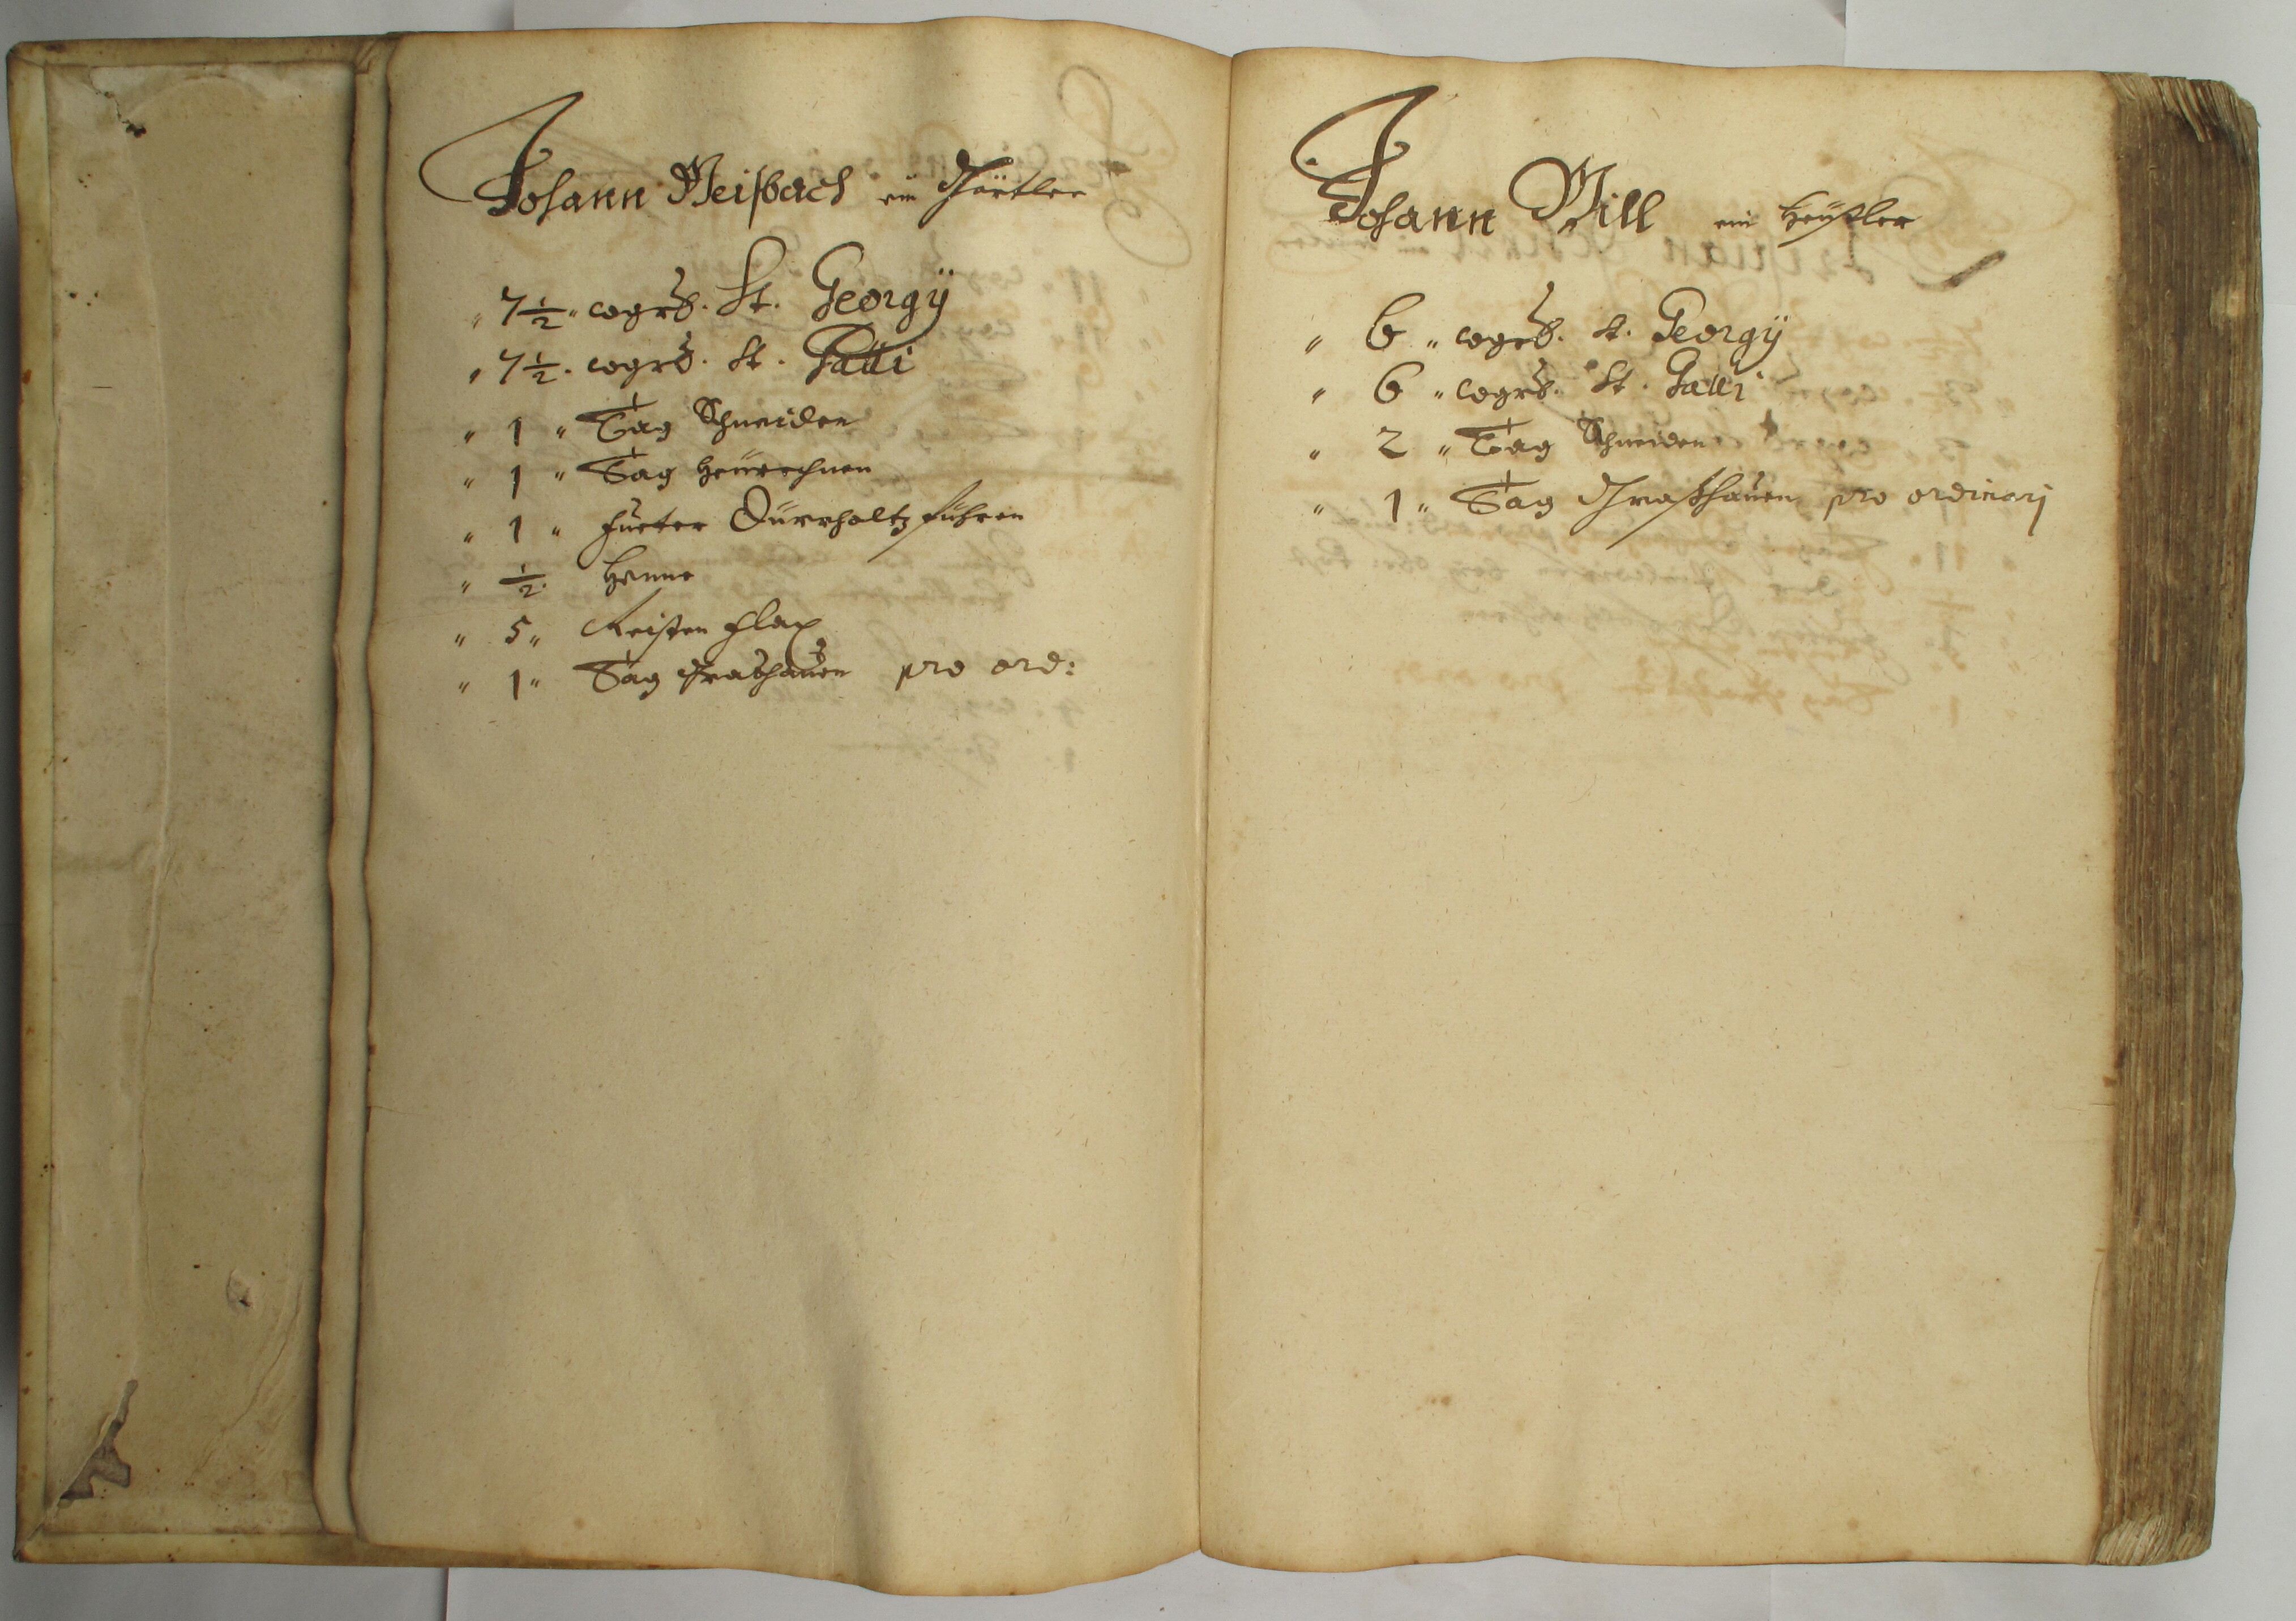 Johann Weisbach ein Gärtler
" 7 1/2 " wgrß. St. Georgÿ
" 7 1/2 . wgrß. St. Galli
" 1 " Tag Schneiden
" 1 " Tag Heürechnen
" 1 " fueter Dürrholtz führen
" 1/2 . Henne
" 5 " Reisten flax
" 1 " Tag Graßhauen pro ord:
Johann Will ein Heüßler
" 6 " wgrß. St. Georgÿ
" 6 " wgrß. St. Galli
" 2 " Tag Schneiden
" 1 " Tag Graßhauen pro ordinarj